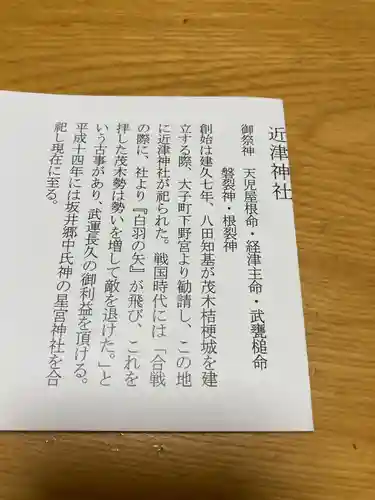 近津神社
御祭神　天児屋根命・経津主命・武甕槌命
磐裂神・根裂神
創始は建久七年、八田知基が茂木桔梗城を建
立する際、大子町下野宮より勧請し、この地
に近津神社が祀られた。戦国時代には「合戦
の際に、社より『白羽の矢』が飛び、これを
拝した茂木勢は勢いを増して敵を退けた。」と
いう古事があり、武運長久の御利益を頂ける。
平成十四年には坂井郷中氏神の星宮神社を合
祀し現在に至る。